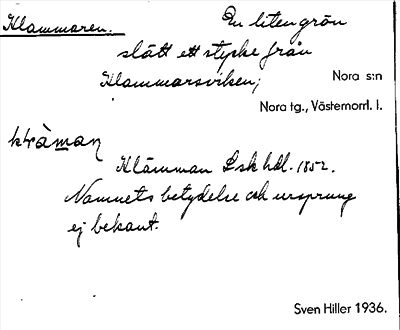 Klammaren. En liten grön
slätt ett stycke från
Klammarsviken; Nora s:n
Nora tg., Västernorrl. l.
klàman
Klämman Lsk hdl. 1852.
Namnets betydelse och ursprung
ej bekant.
Sven Hiller 1936.